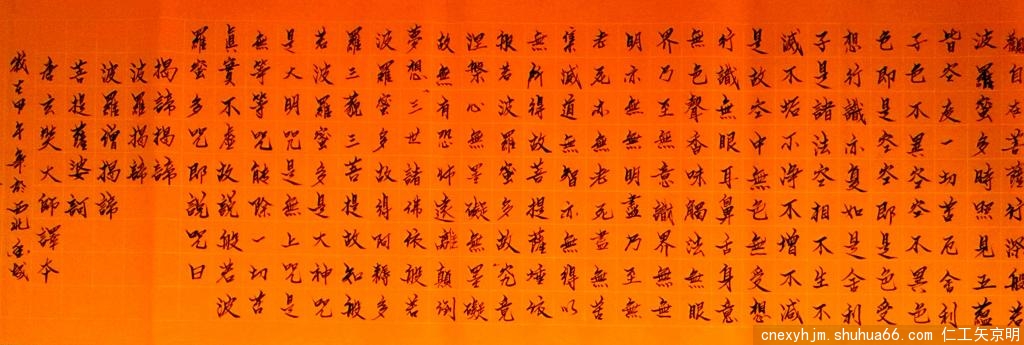 觀自在菩薩行深般若
波羅蜜多時照見五蘊
皆空度一切苦厄舍利
子色不異空空不異色
色即是空空即是色受
想行識亦復如是舍利
子是諸法空相不生不
滅不垢不淨不增不減
是故空中無色無受想
行識無眼耳鼻舌身意
無色聲香味觸法無眼
界乃至無意識界無無
明亦無無明盡乃至無
老死亦無老死盡無苦
集滅道無智亦無得以
無所得故菩提薩埵依
般若波羅蜜多故究竟
涅槃心無罣礙無罣礙
故無有恐怖遠離顛倒
夢想三世諸佛依般若
波羅蜜多故得阿耨多
羅三藐三菩提故知般
若波羅蜜多是大神咒
是大明咒是無上咒是
無等等咒能除一切苦
真實不虛故說般若波
羅蜜多咒即說咒曰
揭諦揭諦
波羅揭諦
波羅僧揭諦
菩提薩婆訶
唐玄奘大師譯本
歲在甲午年於西北金城
cnexyhjm.shuhua66.com 仁工矢京明